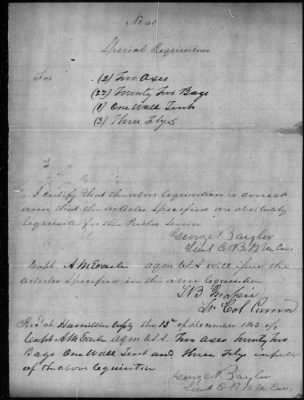 No 40
Special Requisition
For
(2) Two Axes
(22) Twenty Two Bags
(1) One Wall Tent
(3) Three Flys
I certify that the above requisition is correct
and that the articles specified are absolutely
requisite for the Public Service
George Baylor
Lieut
Capt. A M will issue the
articles specified in the above requisition
Lt Col Comd
Recd at the 15th of December 186
Capt A M Two Axes Twenty Two
Bags One Wall Tent and Three Fly in full
of the above requisition
George Baylor
Lieut